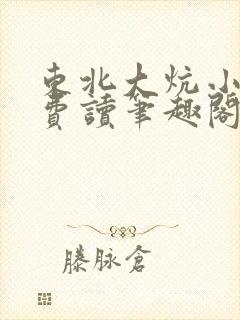 東北大炕小
費讀筆趣閣
滕脉倉